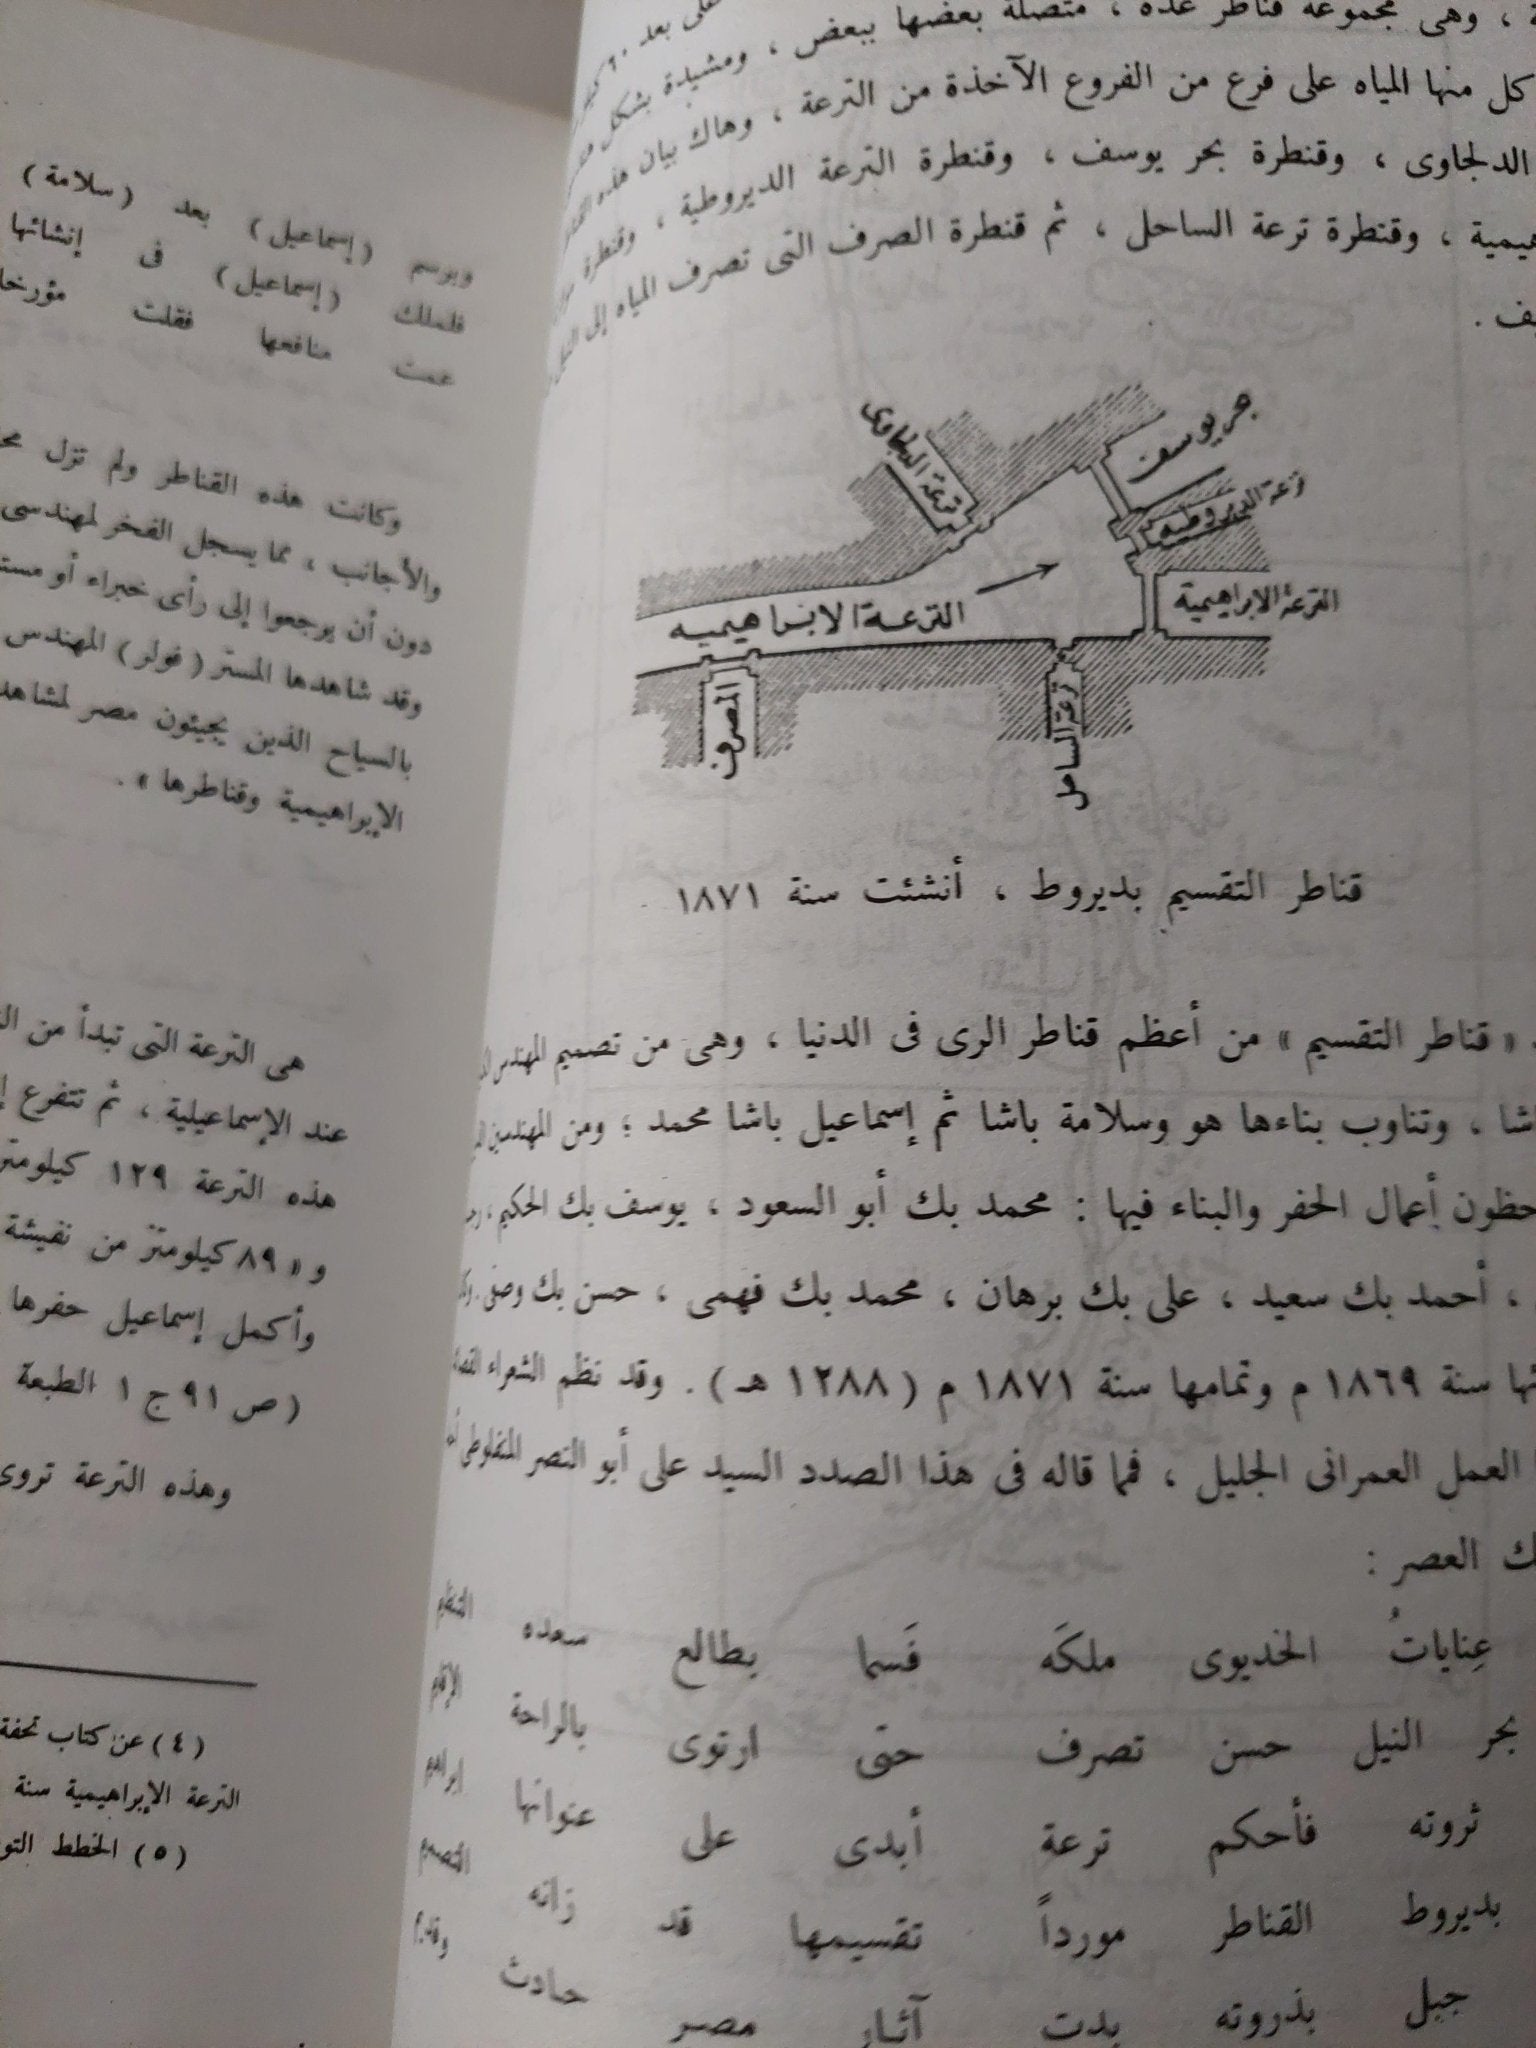 ، وهى مجموعة قناطر عدة ، متصلة بعضها ببعض ، ومشيدة بشكل
كل منها المياه على فرع من الفروع الآخذة من الترعة ، وهاك بيان هذه
الدلجاوى ، وقنطرة بحر يوسف ، وقنطرة الترعة الديروطية ، وقنطرة
، وقنطرة ترعة الساحل ، ثم قنطرة الصرف التى تصرف المياه إلى النيل
بحر يوسف
ترعة الدلجاوى
ترعة الديروطيه
الترعة الابراهيمية
الترعة الابراهيميه
المصرف
ترعة الساحل
قناطر التقسيم بديروط ، أنشئت سنة ١٨٧١
« قناطر التقسيم » من أعظم قناطر الرى فى الدنيا ، وهى من تصميم المهندس
، وتناوب بناءها هو وسلامة باشا ثم إسماعيل باشا محمد ؛ ومن المهندسين
أعمال الحفر والبناء فيها : محمد بك أبو السعود ، يوسف بك الحكيم ،
، أحمد بك سعيد ، على بك برهان ، محمد بك فهمى ، حسن بك وصفى .
سنة ١٨٦٩ م وتمامها سنة ١٨٧١ م ( ١٢٨٨ هـ ) . وقد نظم الشعراء
العمل العمرانى الجليل ، فمما قاله فى هذا الصدد السيد على أبو النصر المنفلوطى
العصر :
عِناياتُ الخديوى ملكَه فَسما بطالع سعده
بحر النيل حسن تصرف حتى ارتوى بالراحة
ثروته فأحكم ترعة أبدى على عنوانها
بديروط القناطر مورداً تقسيمها قد زانه
جبل بذروته بدت آثار مصر حادث
وبرسم (إسماعيل) بعد (سلامة)
فلملك (إسماعيل) فى إنشائها
عمت منافعها فقلت
وكانت هذه القناطر ولم تزل
والأجانب ، مما يسجل الفخر لمهندسى
دون أن يرجعوا إلى رأى خبراء أو
وقد شاهدها المستر ( فولر ) المهندس
بالسياح الذين يجيئون مصر
الإبراهيمية وقناطرها » .
هى الترعة التى تبدأ من
عند الإسماعيلية ، ثم تتفرع
هذه الترعة ١٢٩
و « ٨٩ كيلومتر من نفيشة
وأكمل إسماعيل حفرها
( ص ٩١ ج ١ الطبعة
وهذه الترعة تروى
( ٤ ) عن كتاب
الترعة الإبراهيمية سنة
( ٥ ) الخطط